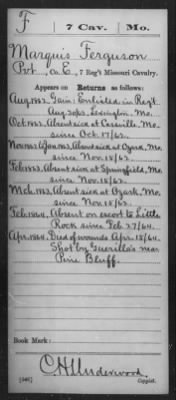 F 7 Cav. Mo.
Marquis Ferguson
Pvt., Co. E, 7 Reg't Missouri Cavalry.
Appears on Returns as follows:
Aug. 1862. Gain: Enlisted in Regt.
Aug 30/62. Lexington, Mo.
Oct. 1862. Absent sick at Cassville, Mo.
since Oct. 17/62.
Nov. 1862 & Jan. 1863. Absent sick at Ozark, Mo.
since Nov. 15/62.
Feb. 1863. Absent sick at Springfield, Mo.
since Nov. 15/62.
Mch. 1863. Absent sick at Ozark, Mo.
since Nov. 15/62.
Feb. 1864. Absent on escort to Little
Rock since Feb. 27/64.
Apr. 1864. Died of wounds Apr. 15/64.
Shot by Guerilla's near
Pine Bluff.
Book Mark:
C H Underwood
(546) Copyist.